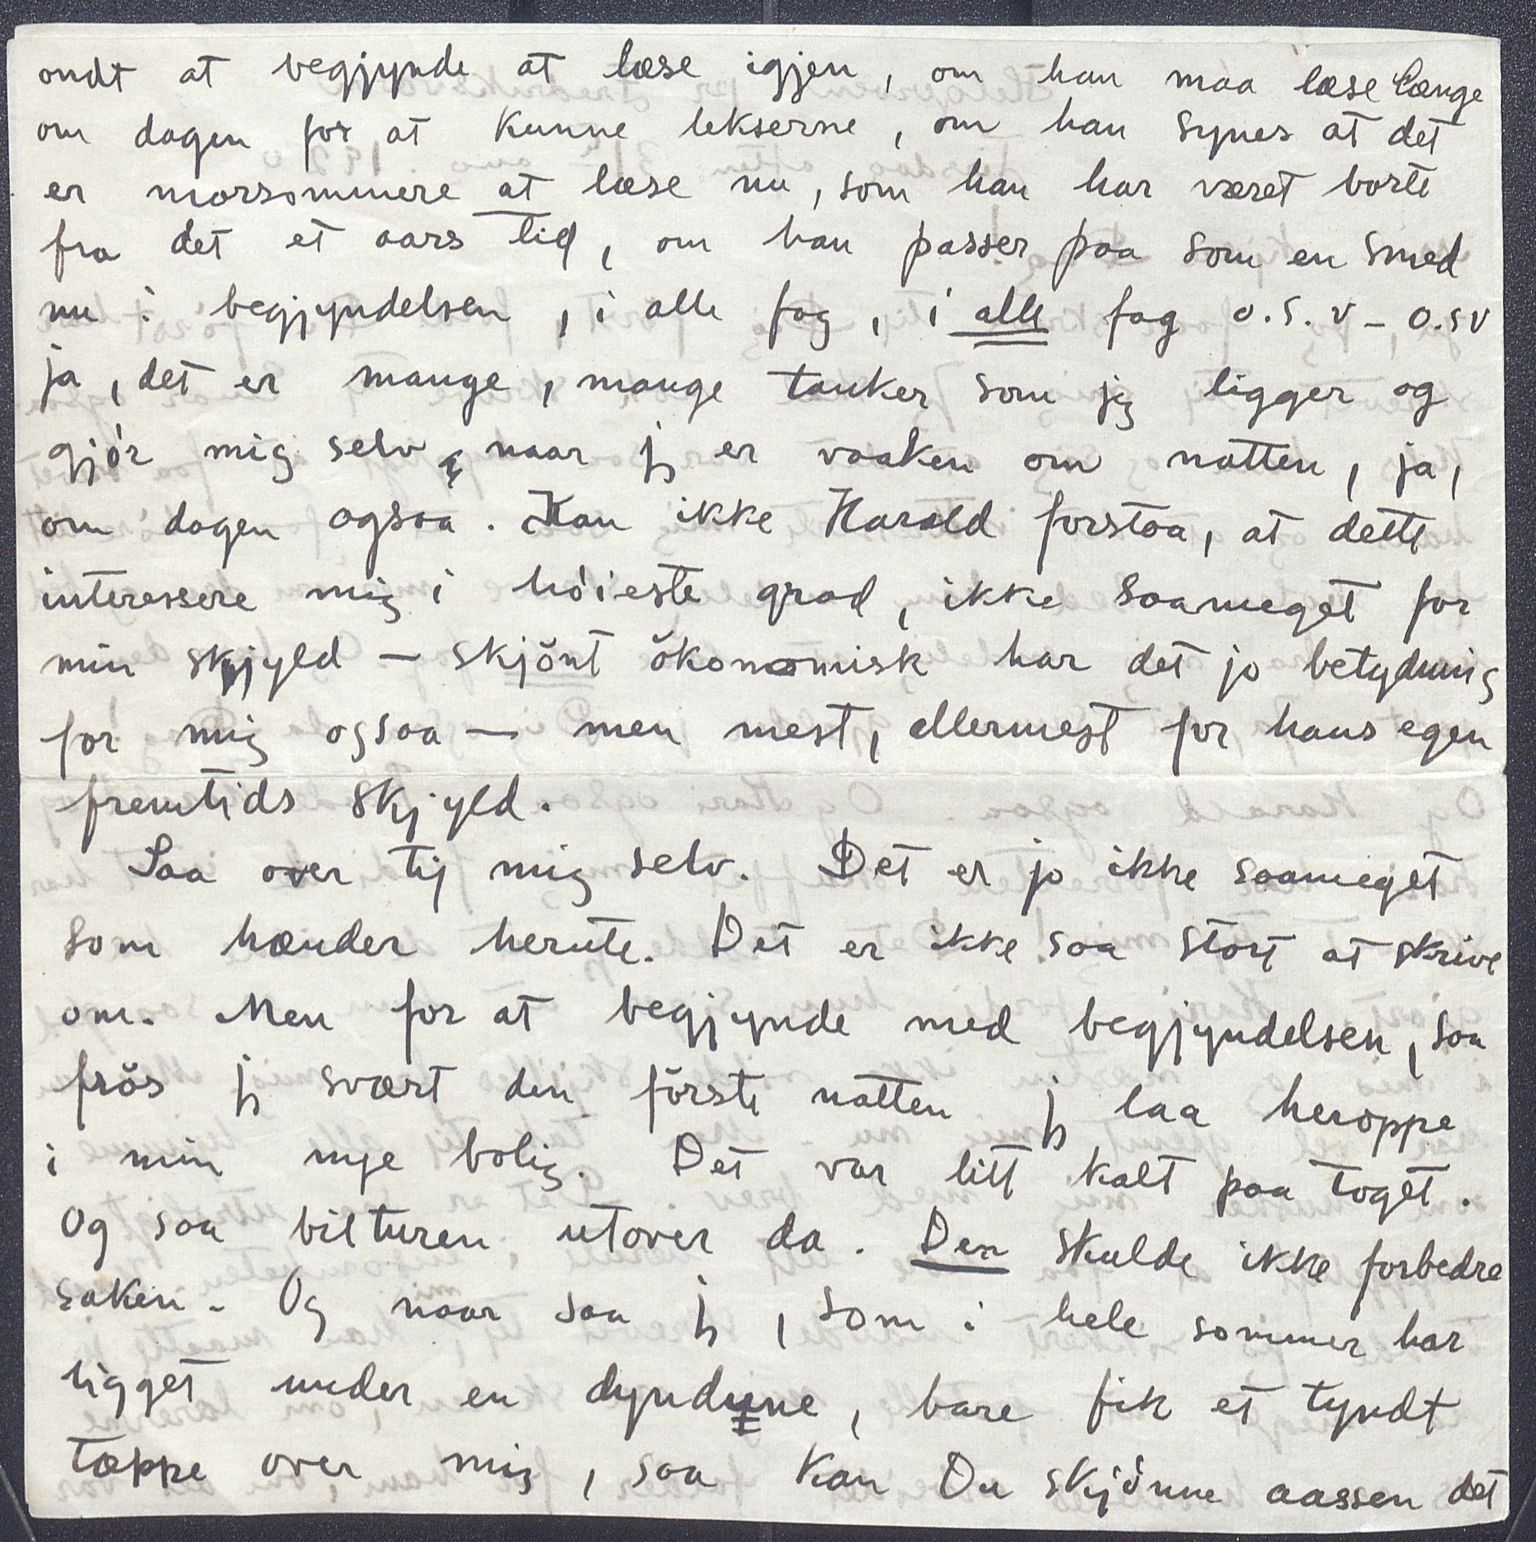 ondt at begjynde at læse igjen, om han maa læse længe
om dagen for at kunne lekserne, om han synes at det
er morsommere at læse nu, som han har været borte
fra det et aars tid, om han passer paa som en smed
nu i begjyndelsen, i alle fag, i alle fag o.s.v - o.sv
ja, det er mange, mange tanker som jeg ligger og
gjör mig selv, naar jeg er vaaken om natten, ja,
om dagen ogsaa. Kan ikke Harald forstaa, at dette
interessere mig i höieste grad, ikke saameget for
min skjyld - skjönt ökonomisk har det jo betydning
for mig ogsaa - men mest, allermest for hans egen
fremtids skjyld.
Saa over til mig selv. Det er jo ikke saameget
som hænder herute. Det er ikke saa stort at skrive
om. Men for at begjynde med begjyndelsen, saa
frös jeg svært den förste natten jeg laa heroppe
i min nye bolig. Det var litt kalt paa toget.
Og saa bilturen utover da. Den skulde ikke forbedre
saken. Og naar saa jeg, som i hele sommer har
ligget under en dyndyne, bare fik et tyndt
tæppe over mig, saa kan Du skjönne aassen det